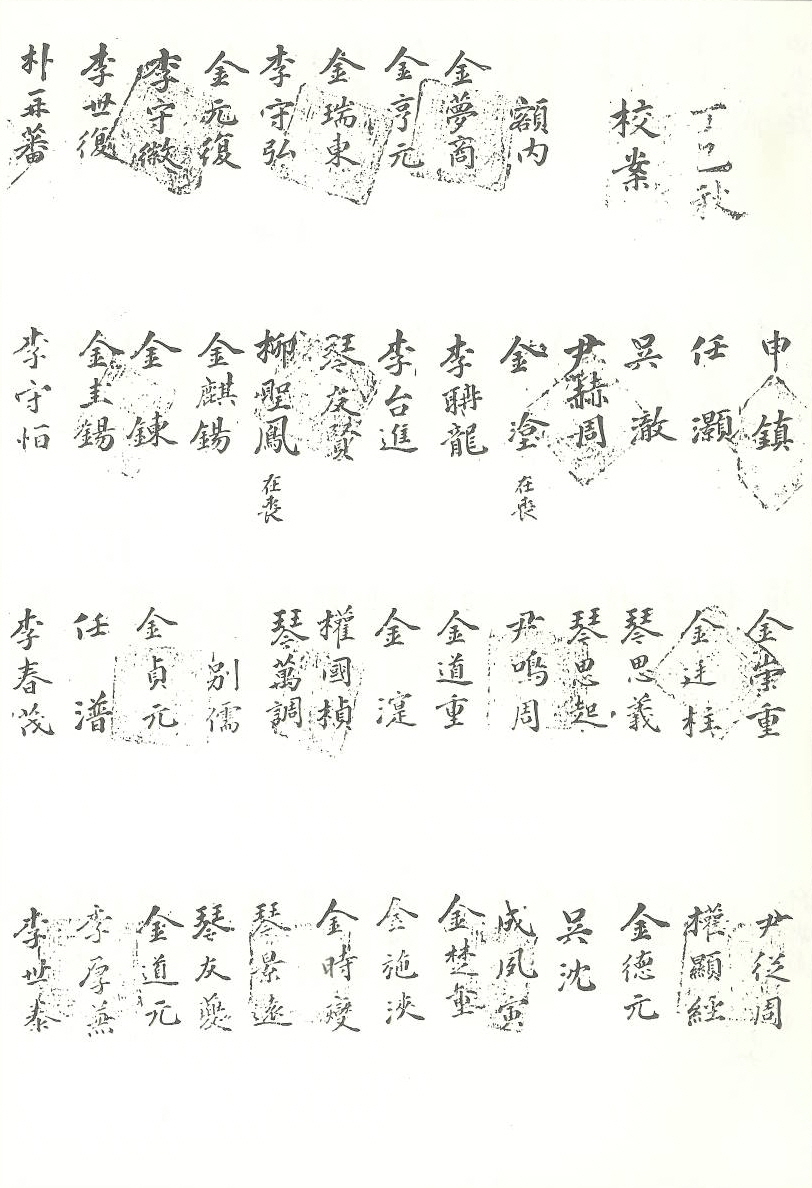 丁巳秋
校案
額內
金夢商
金亨元
金瑞東
李守弘
金元復
李守徽
李世復
朴再蕃
申鎮
任灝
吳澈
尹赫周
金 在喪
李聃龍
李台進
琴 賢
柳聖鳳 在喪
金麒錫
金鍊
金圭錫
李守怕
金崇重
金廷柱
琴思義
琴思起
尹鳴周
金道重
金湜
權國楨
琴萬調
別儒
金貞元
任潽
李春茂
尹從周
權顯經
金德元
吳沈
成夙寅
金楚重
金施浹
金時燮
琴景遠
琴友夔
金道元
李厚燕
李世泰